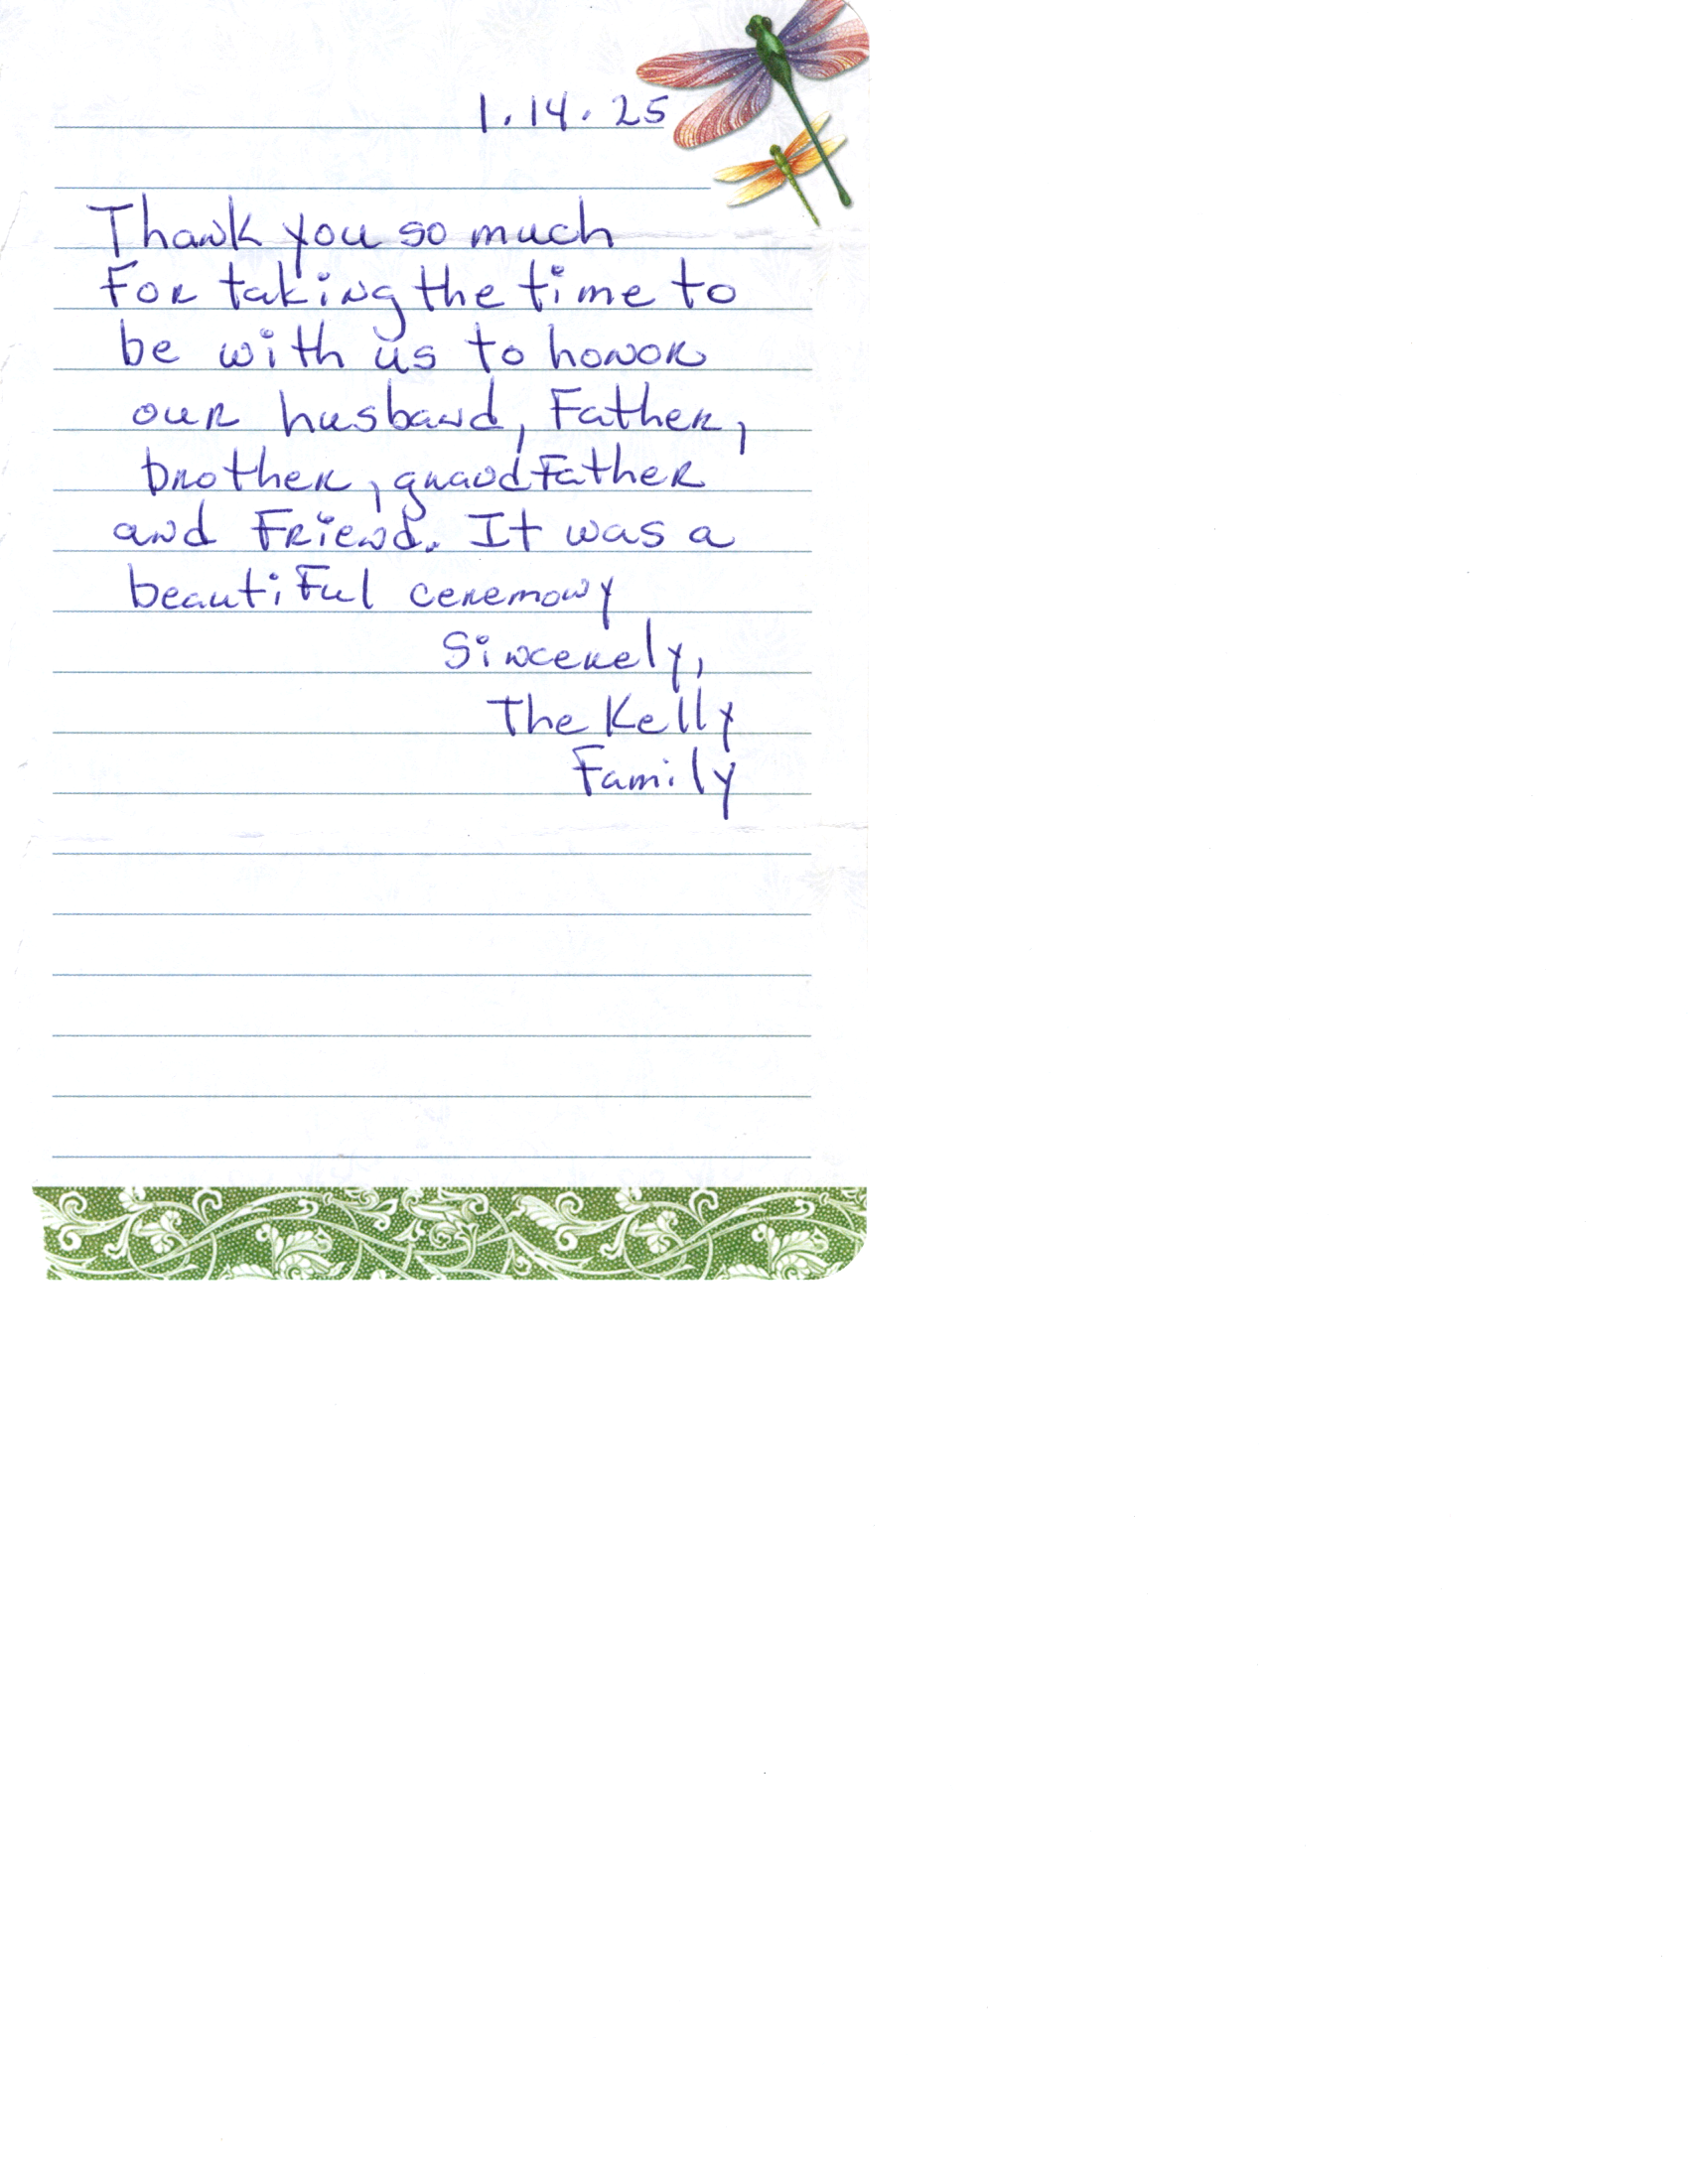 1.14.25
Thank you so much
For taking the time to
be with us to honor
our husband, Father,
brother, grandFather
and Friend. It was a
beautiFul ceremony
Sincerely,
The Kelly
Family